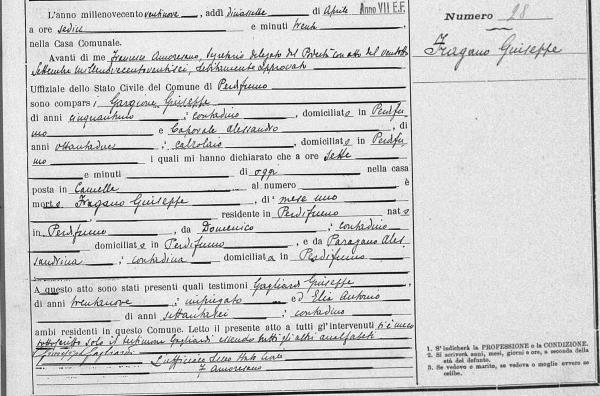 L'anno millenovecento ventinove, addì diciassette di Aprile Anno VII E.F.
a ore sedici e minuti trenta,
nella Casa Comunale.
Avanti di me Francesco Amoresano, Segretario delegato del Podestà con atto del ventotto
Settembre millenovecentoventisei, debitamente approvato
Uffiziale dello Stato Civile del Comune di Perdifumo
sono comparsi Gargione Giuseppe
di anni cinquantuno; contadino, domiciliato in Perdifu-
mo e Caporale Alessandro, di
anni ottantadue; calzolaio, domiciliato in Perdifu-
mo i quali mi hanno dichiarato che a ore sette
e minuti di oggi nella casa
posta in Camella al numero è
morto Fragano Giuseppe, di mese uno
, residente in Perdifumo nato
in Perdifumo, da Domenico; contadino
domiciliato in Perdifumo, e da Paragano Ales-
sandrina; contadina domiciliata in Perdifumo
A questo atto sono stati presenti quali testimoni Gagliardi Giuseppe
di anni trentanove; impiegato e d Elia Antonio
di anni settantasei; contadino
ambi residenti in questo Comune. Letto il presente atto a tutti gl'intervenuti si è meco
sottoscritto solo il testimone Gagliardi essendo tutti gli altri analfabeti
Giuseppe Gagliardi
L'ufficiale dello Stato Civile
F Amoresano
Numero 28
Fragano Giuseppe
1. S'indicherà la PROFESSIONE o la CONDIZIONE.
2. Si scriverà anni, mesi, giorni e ore, a seconda della
età del defunto.
3. Se vedovo o marito, se vedova o moglie ovvero se
celibe.